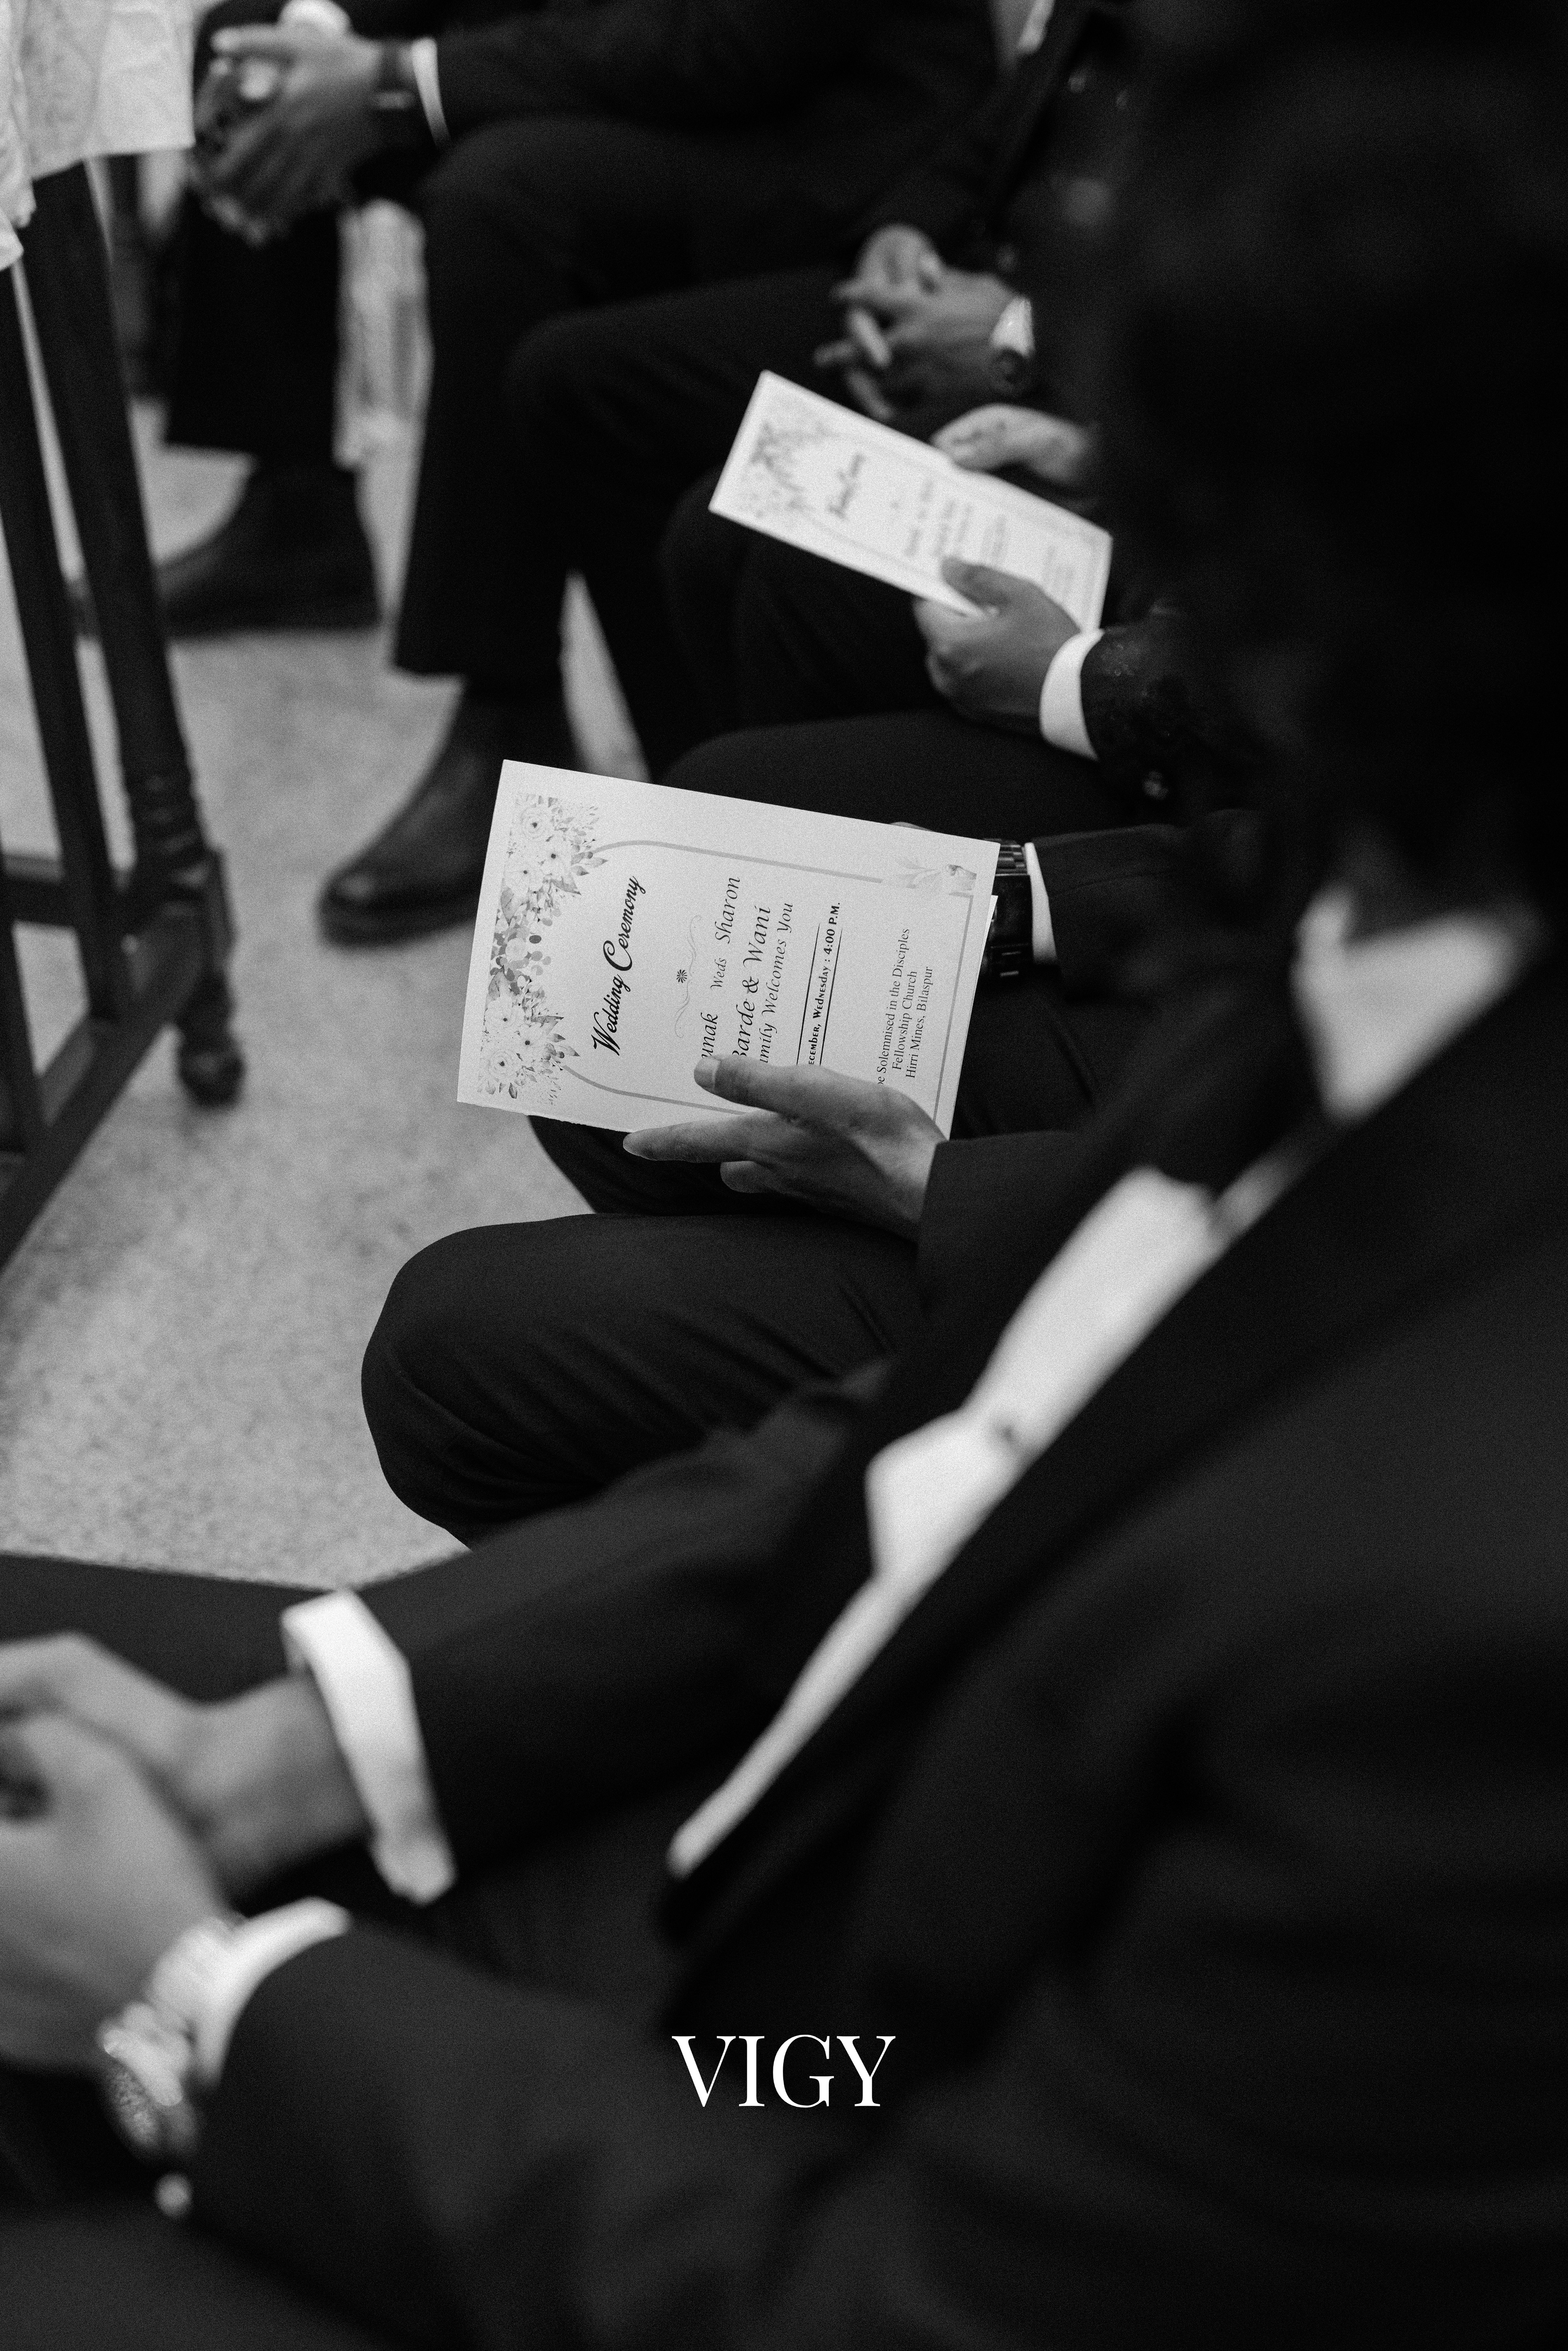 Wedding Ceremony
unak Weds Sharon
Barde & Wani
amily Welcomes You
ecember, Wednesday : 4:00 P.M.
be Solemnised in the Disciples
Fellowship Church
Hirri Mines, Bilaspur
VIGY